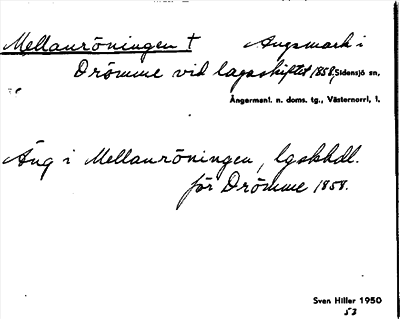 Mellanröningen † Ängsmark i
Drömme vid lagaskiftet 1858, Sidensjö sn,
Ångermanl. n. doms. tg., Västernorrl, l.
Äng i Mellanröningen, lgskhdl.
för Drömme 1858.
Sven Hiller 1950
53